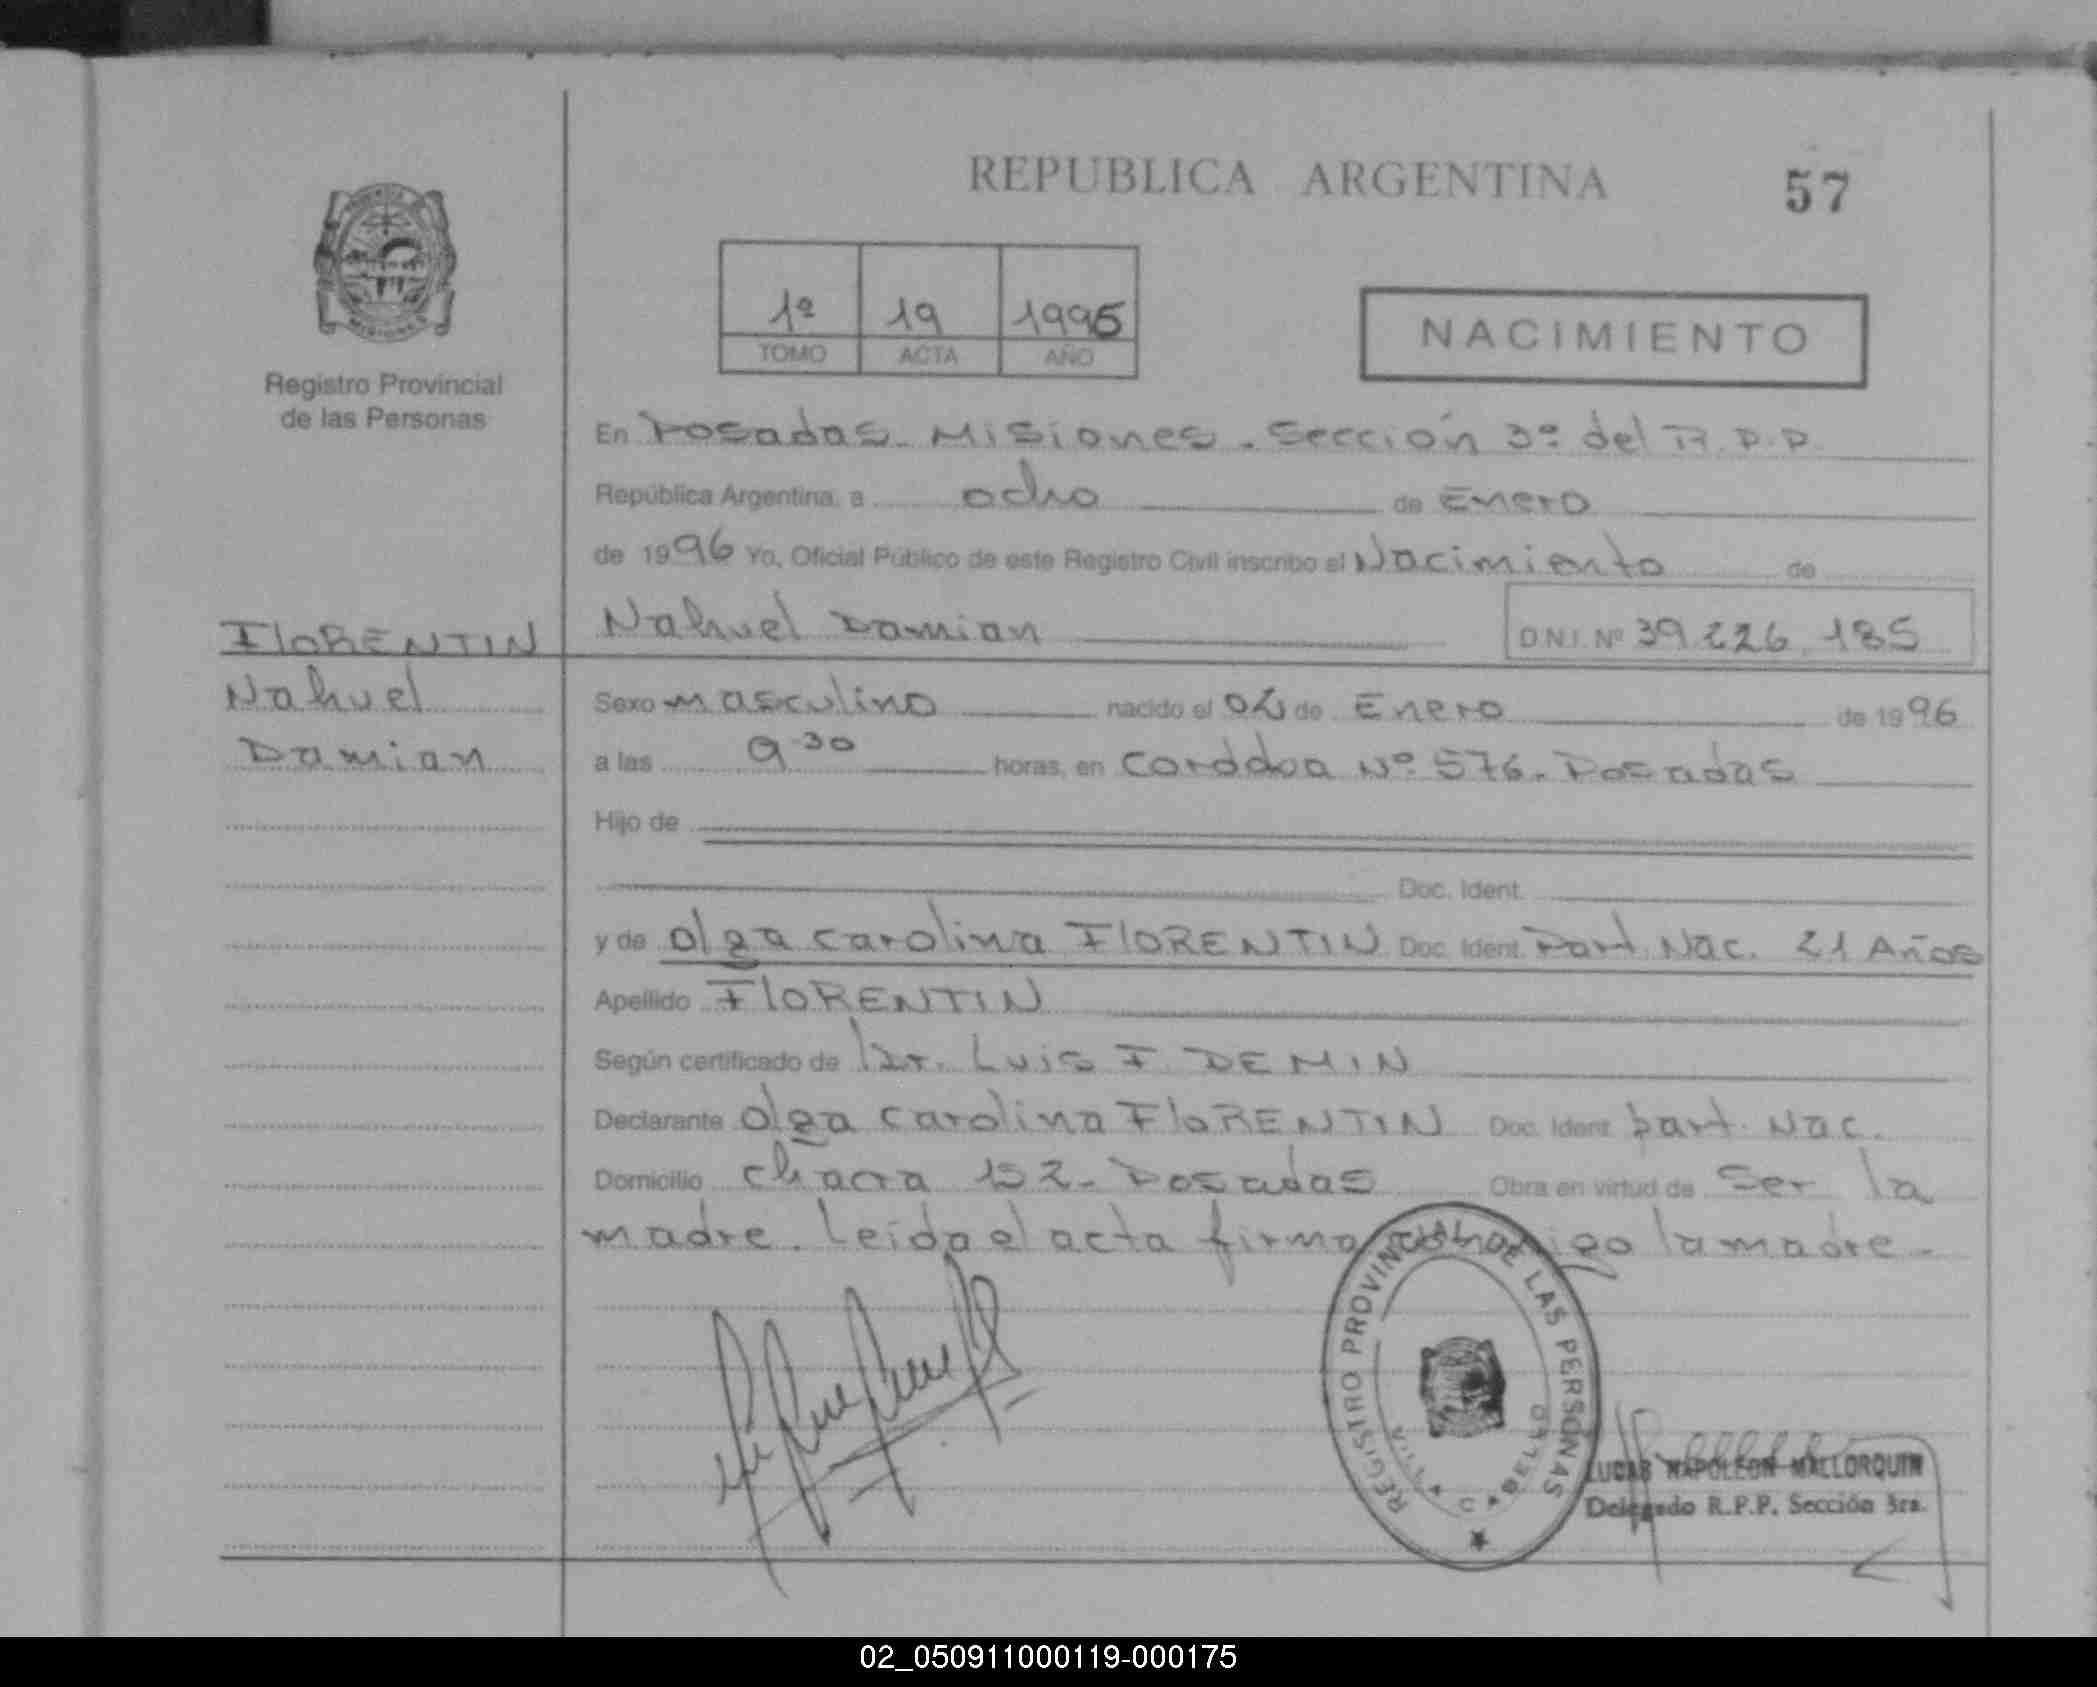 REPUBLICA ARGENTINA
57
1º 19 1996
TOMO ACTA AÑO
NACIMIENTO
Registro Provincial
de las Personas
En Posadas. Misiones. Sección 3º del R.P.P.
República Argentina, a ocho de Enero
de 1996 Yo, Oficial Público de este Registro Civil inscribo el Nacimiento de
Nahuel Damian D.N.I. Nº 39.226.185
FLORENTIN
Nahuel
Damian
Sexo masculino nacido el de Enero de 1996
a las 9 30 horas, en Cordoba Nº 576. Posadas
Hijo de
Doc. Ident.
y de olga carolina FLORENTIN Doc. Ident. Part. Nac. 21 Años
Apellido FLORENTIN
Según certificado de Dr. Luis F. DEMIN
Declarante olga carolina FLORENTIN Doc. Ident. part. Nac.
Domicilio chacra 152. Posadas Obra en virtud de Ser la
madre. Leida el acta firma la madre.
REGISTRO PROVINCIAL DE LAS PERSONAS
LUCAS NAPOLEON MALLORQUIN
Delegado R.P.P. Sección 3ra.
02_050911000119-000175